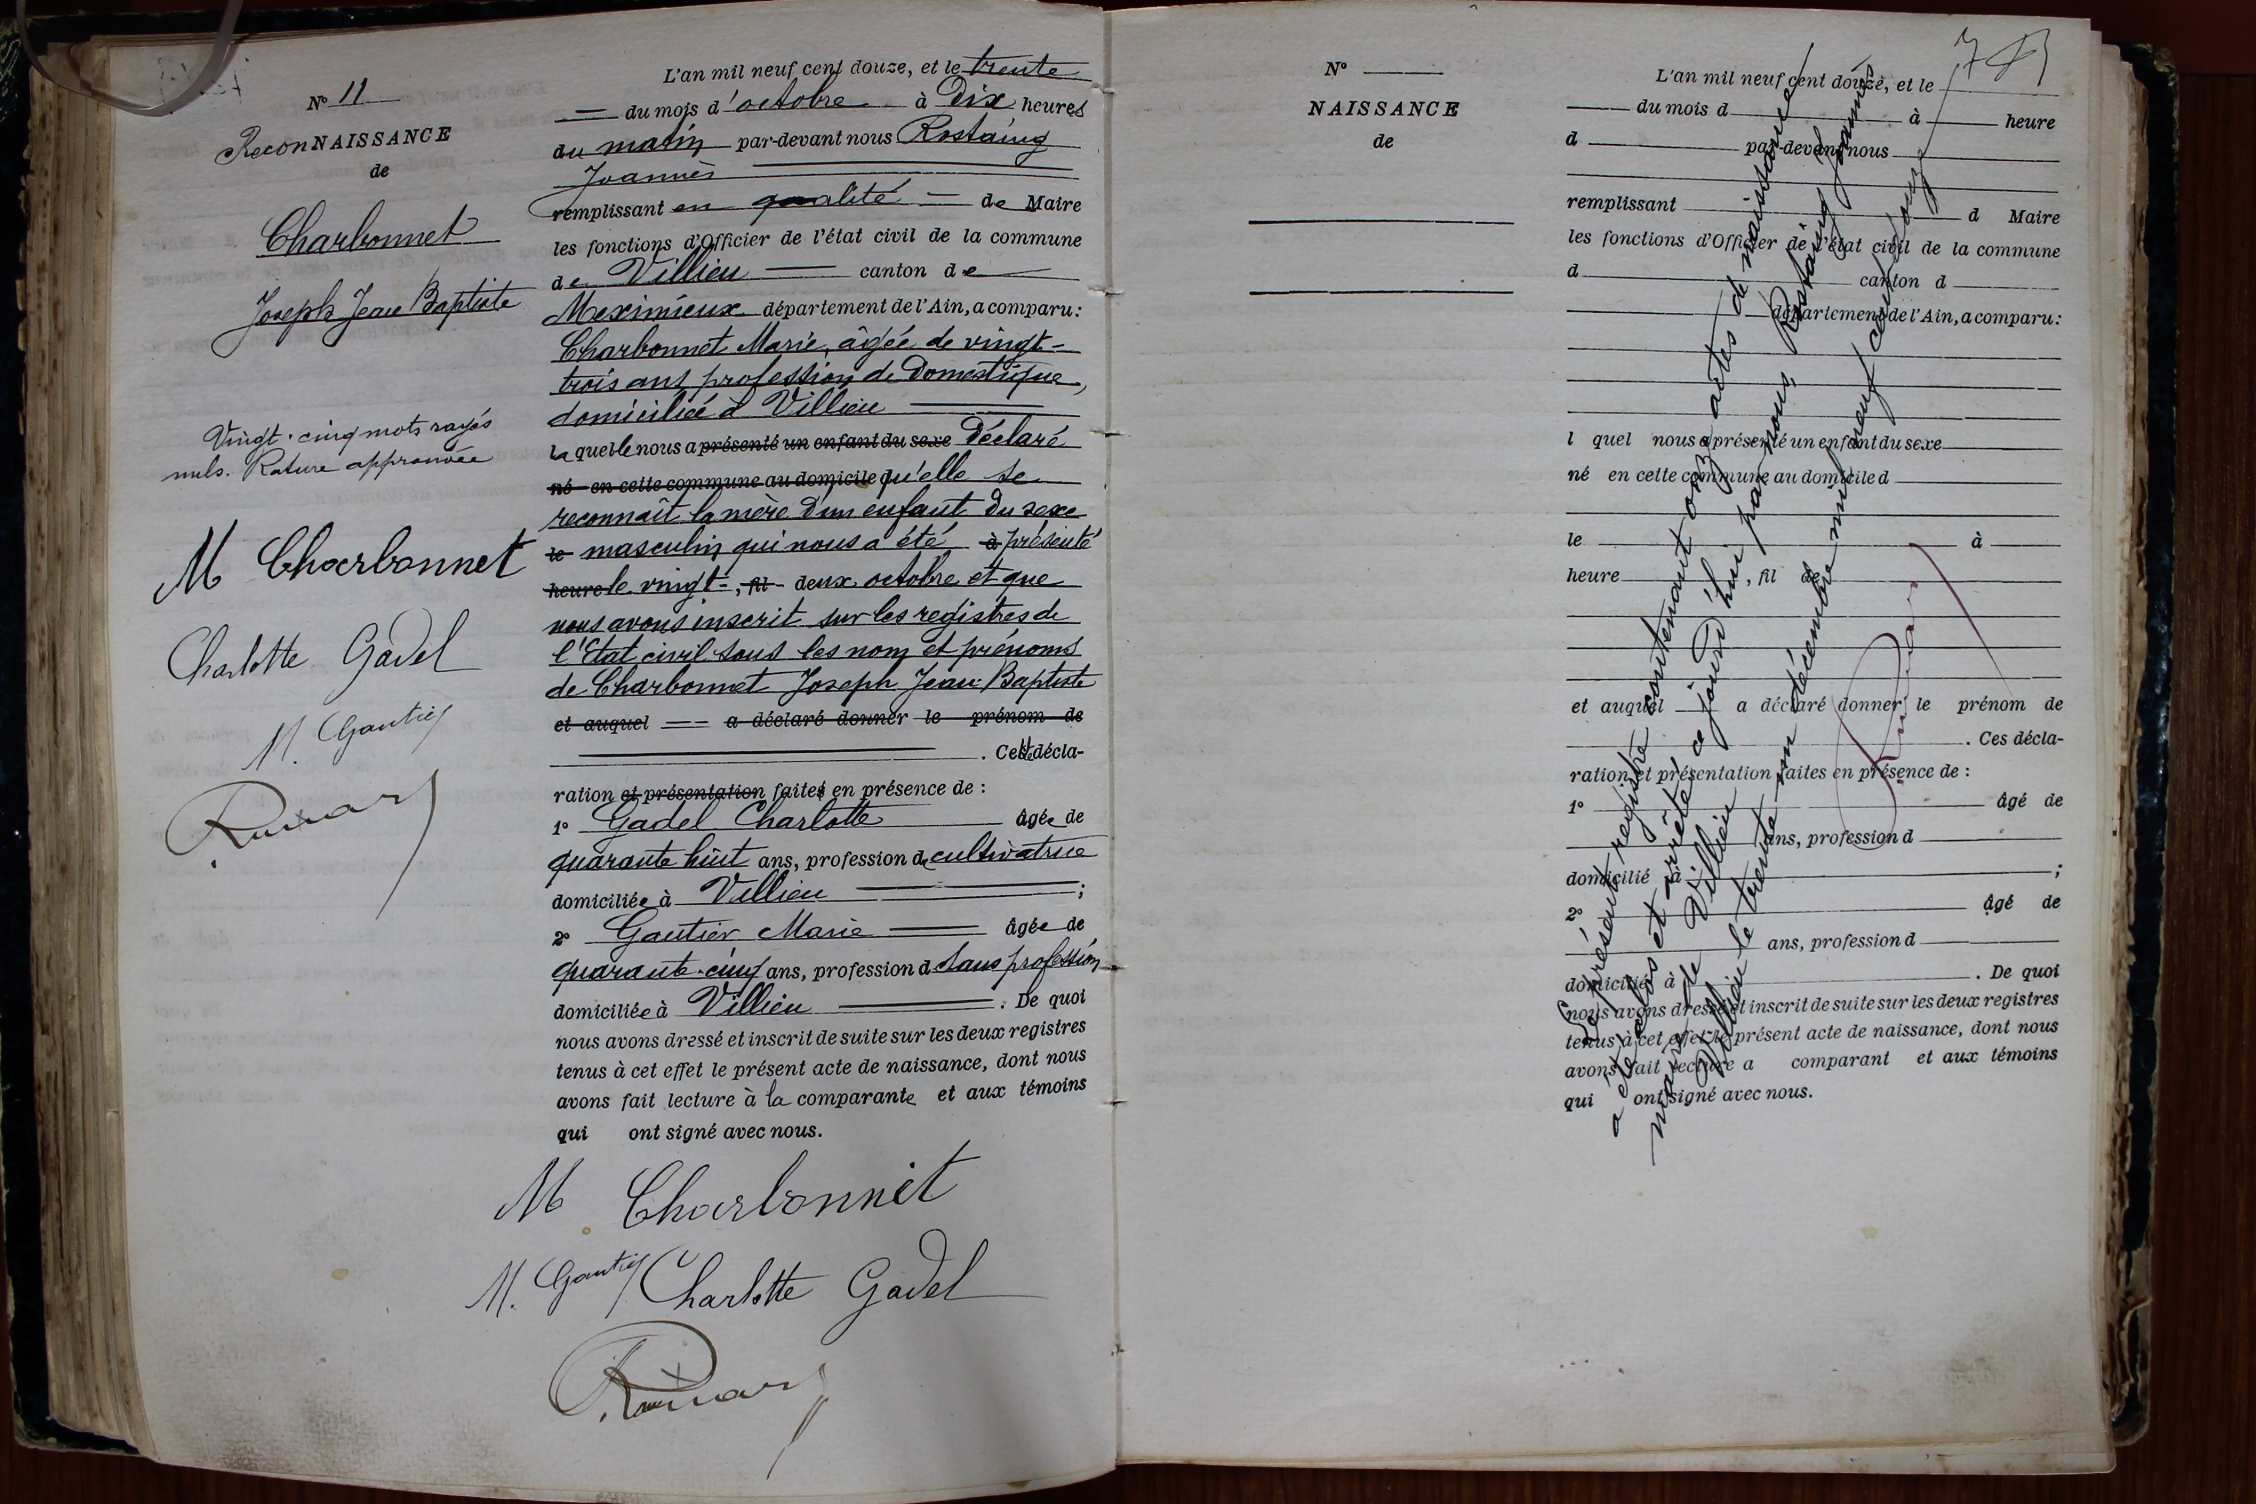 Nº 11
ReconNAISSANCE
de
Charbonnet
Joseph Jean Baptiste
Vingt-cinq mots rayés
nuls. Rature approuvée
M Charbonnet
Charlotte Gadel
M. Gautier
L'an mil neuf cent douze, et le trente
du mois d'octobre à Dix heures
du matin par-devant nous Rostaing
Joannès
remplissant en qualité de Maire
les fonctions d'Officier de l'état civil de la commune
de Villieu canton de
Meximieux département de l'Ain, a comparu:
Charbonnet Marie, âgée de vingt-
trois ans profession de Domestique,
domiciliée à Villieu
laquelle nous a présenté un enfant du sexe Déclaré
né en cette commune au domicile qu'elle se
reconnaît la mère D'un enfant Du sexe
le masculin qui nous a été à présenté
heure le vingt-, fil deux octobre et que
nous avons inscrit sur les registres de
l'Etat civil sous les nom et prénoms
de Charbonnet Joseph Jean-Baptiste
et auquel a déclaré donner le prénom de
. Cette décla-
ration et présentation faites en présence de :
1º Gadel Charlotte âgée de
quarante huit ans, profession de cultivatrice
domiciliée à Villieu ;
2º Gautier Marie âgée de
quarante-cinq ans, profession d sans profession
domiciliée à Villieu . De quoi
nous avons dressé et inscrit de suite sur les deux registres
tenus à cet effet le présent acte de naissance, dont nous
avons fait lecture à la comparante et aux témoins
qui ont signé avec nous.
M Charbonnet
M. Gautier Charlotte Gadel
Nº
NAISSANCE
de
L'an mil neuf cent douze, et le
du mois d à heure
d par-devant nous
remplissant d Maire
les fonctions d'Officier de l'état civil de la commune
d canton d
département de l'Ain, a comparu:
l quel nous a présenté un enfant du sexe
né en cette commune au domicile d
le à
heure , fil de
et auquel a déclaré donner le prénom de
. Ces décla-
ration et présentation faites en présence de :
1º âgé de
ans, profession d
domicilié à ;
2º âgé de
ans, profession d
domicilié à . De quoi
nous avons dressé et inscrit de suite sur les deux registres
tenus à cet effet le présent acte de naissance, dont nous
avons fait lecture a comparant et aux témoins
qui ont signé avec nous.
Le présent registre contenant onze actes de naissance
a été clos et arrêté ce jourd'hui par nous, Rostaing Joannès
maire de Villieu
Villieu le trente un décembre mil neuf cent douze